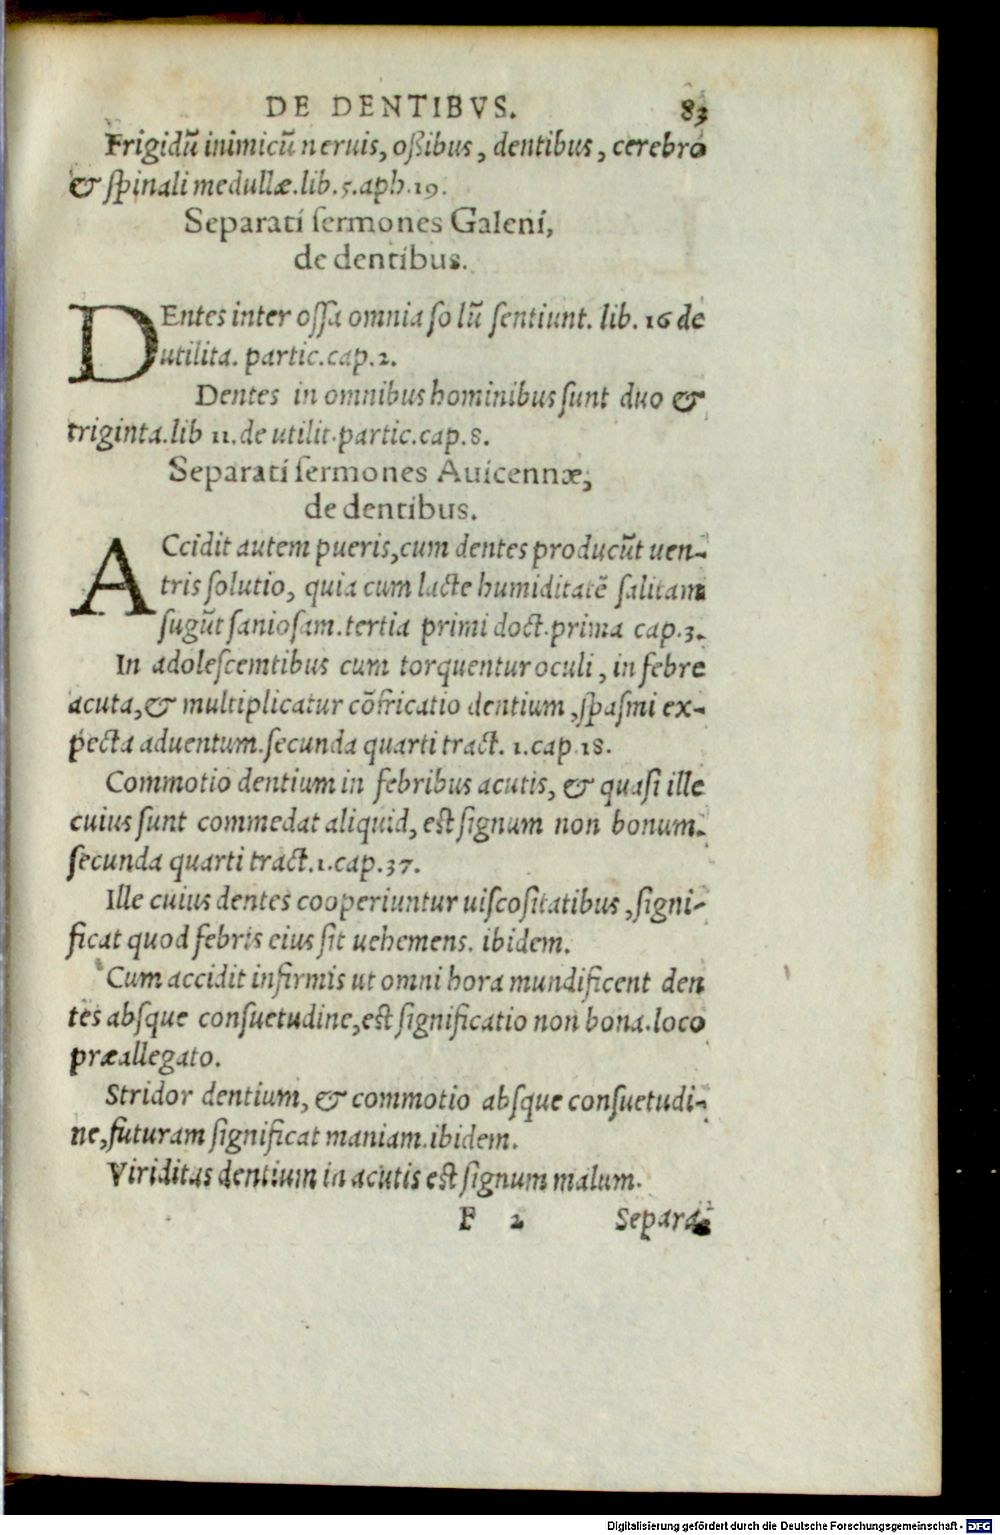 DE DENTIBVS. 83
Frigidũ inimicũ neruis, oßibus, dentibus, cerebro
& ſpinali medullæ.lib.5.aph.19.
Separati ſermones Galeni,
de dentibus.
DEntes inter oſſa omnia ſolũ ſentiunt. lib. 16 de
utilita. partic.cap.2.
Dentes in omnibus hominibus ſunt duo &
triginta.lib 11.de utilit.partic.cap.8.
Separati ſermones Auicennæ,
de dentibus.
ACcidit autem pueris,cum dentes producũt uen-
tris ſolutio, quia cum lacte humiditatẽ ſalitam
ſugũt ſanioſam.tertia primi doct.prima cap.3.
In adoleſcemtibus cum torquentur oculi, in febre
acuta,& multiplicatur cõfricatio dentium ,ſpaſmi ex-
pecta aduentum.ſecunda quarti tract. 1.cap.18.
Commotio dentium in febribus acutis, & quaſi ille
cuius ſunt commedat aliquid, eſt ſignum non bonum.
ſecunda quarti tract.1.cap.37.
Ille cuius dentes cooperiuntur uiſcoſitatibus ,ſigni-
ficat quod febris eius ſit uehemens. ibidem.
Cum accidit infirmis ut omni hora mundificent den
tes abſque conſuetudine,eſt ſignificatio non bona.loco
præallegato.
Stridor dentium, & commotio abſque conſuetudi-
ne,futuram ſignificat maniam.ibidem.
Viriditas dentium in acutis eſt ſignum malum.
F 2 Separa-
Digitalisierung gefördert durch die Deutsche Forschungsgemeinschaft - DFG